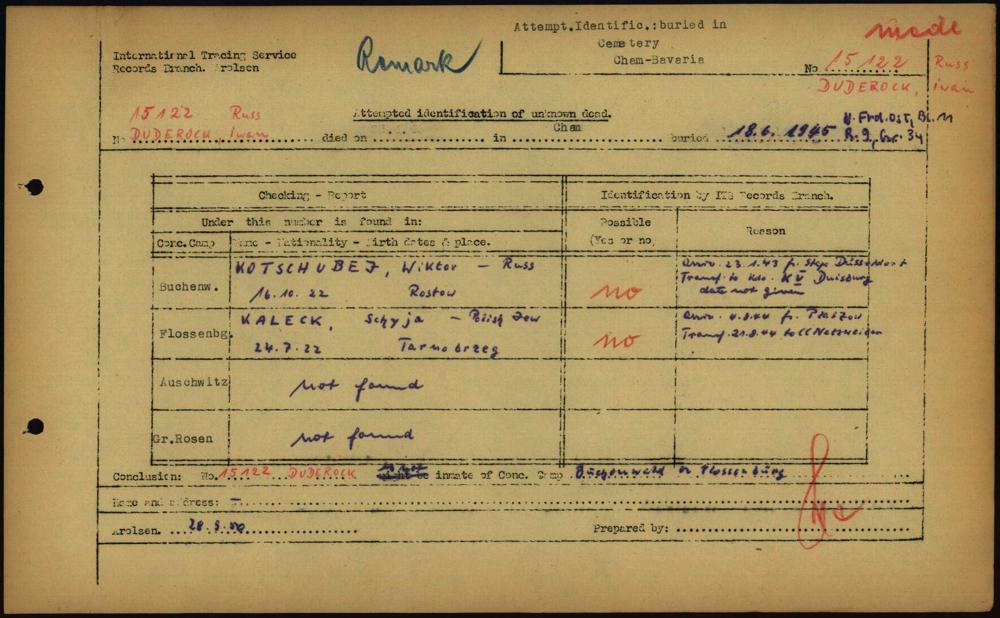 Attempt.Identific.: buried in
Cemetery
Cham-Bavaria
made
International Tracing Service
Records Branch. Arolsen
Remark
No 15122 Russ
DUDEROCK, Iwan
Attempted identification of unknown dead.
15122 Russ
No DUDEROCK, Iwan died on in Cham buried 18.6.1945
R. 9, Gr. 34
Checking - Report
Identification by ITS Records Branch.
Under this number is found in:
Possible
(Yes or no,
Reason
Conc.Camp
Name - Nationality - Birth dates & place.
Buchenw.
KOTSCHUBEJ, Wiktor - Russ
16.10.22 Rostow
no
Arriv. 23.1.43 fr. Stapo Düsseldorf
Transf. to Kdo. KV Duisburg
date not given
Flossenbg.
KALECK, Schyja - Polish Jew
24.7.22 Tarnobrzeg
no
Arriv. 4.8.44 fr. Plaszow
Transf. 21.8.44 to CC Natzweiler
Auschwitz
not found
Gr.Rosen
not found
Conclusion: No. 15122 DUDEROCK is not might be inmate of Conc. Camp Buchenwald or Flossenbürg
Name and address: -
Arolsen. 28.9.50
Prepared by: